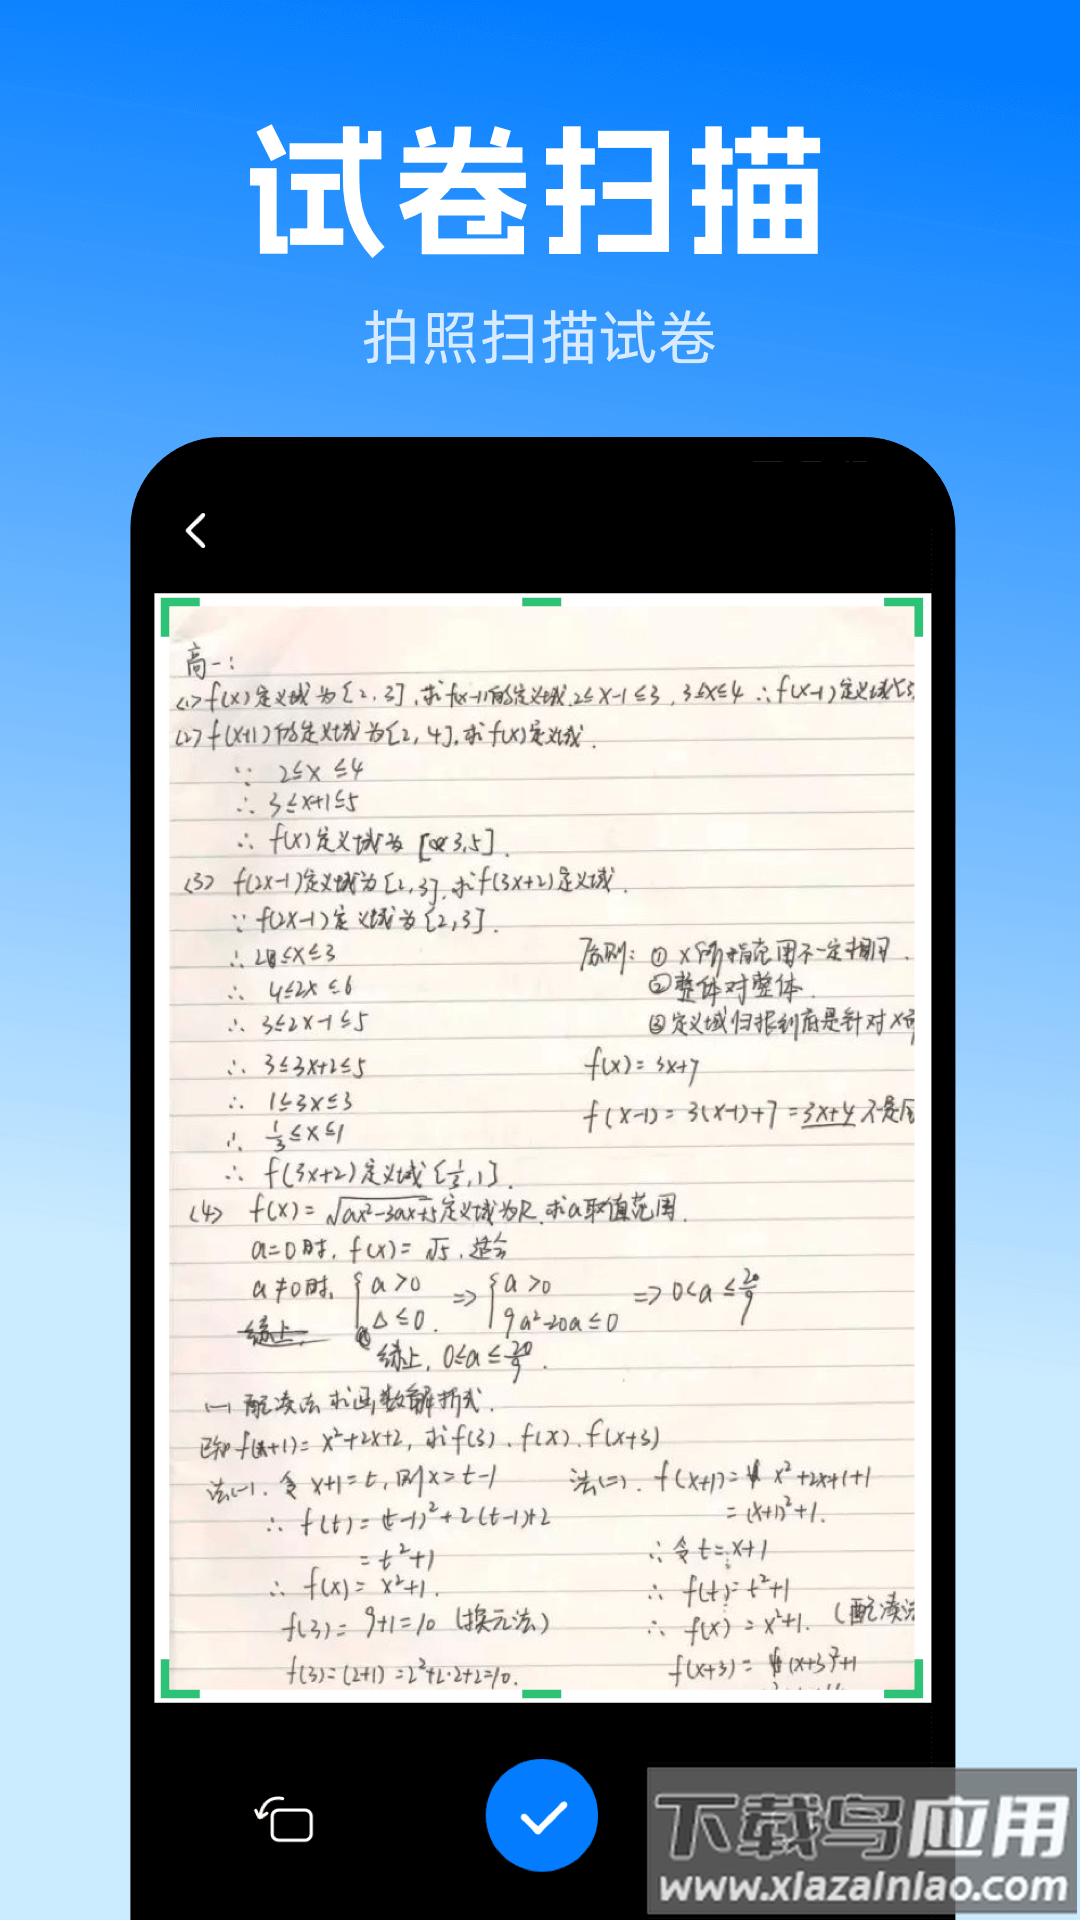 试卷扫描
拍照扫描试卷
高一:
(1) f(x)定义域为[2,3],求f(x-1)的定义域.2≤x-1≤3,3≤x≤4 ∴f(x-1)定义域[3,
(2) f(x+1)的定义域为[2,4],求f(x)定义域.
∵ 2≤x≤4
∴ 3≤x+1≤5
∴ f(x)定义域为 [3,5].
(3) f(2x-1)定义域为[2,3],求f(3x+2)定义域.
∵ f(2x-1)定义域为[2,3].
∴ 2≤x≤3
∴ 4≤2x≤6
∴ 3≤2x-1≤5
∴ 3≤3x+2≤5
∴ 1≤3x≤3
∴ 1/3≤x≤1
∴ f(3x+2)定义域[1/3,1].
原则: ① x所指范围不一定相同.
②整体对整体.
③定义域归根到底是针对x而
f(x)=3x+7
f(x-1)=3(x-1)+7=3x+4 不是原
(4) f(x)=√ax²-3ax+5定义域为R.求a取值范围.
a=0时, f(x)=√5.适合
a≠0时, {a>0 => {a>0 => 0<a≤20/9
Δ≤0. 9a²-20a≤0
综上,
综上, 0≤a≤20/9.
(一)配凑法求函数解析式.
已知f(x+1)=x²+2x+2, 求f(3).f(x).f(x+3)
法(一).令x+1=t,则x=t-1
∴ f(t)=(t-1)²+2(t-1)+2
=t²+1
∴ f(x)=x²+1.
f(3)=9+1=10 (换元法)
f(3)=(2+1)=2²+2·2+2=10.
法(二). f(x+1)=x²+2x+1+1
=(x+1)²+1.
∴ 令t=x+1
∴ f(t)=t²+1
∴ f(x)=x²+1. (配凑法
f(x+3)=(x+3)²+1
下载鸟应用
www.xiazainiao.com